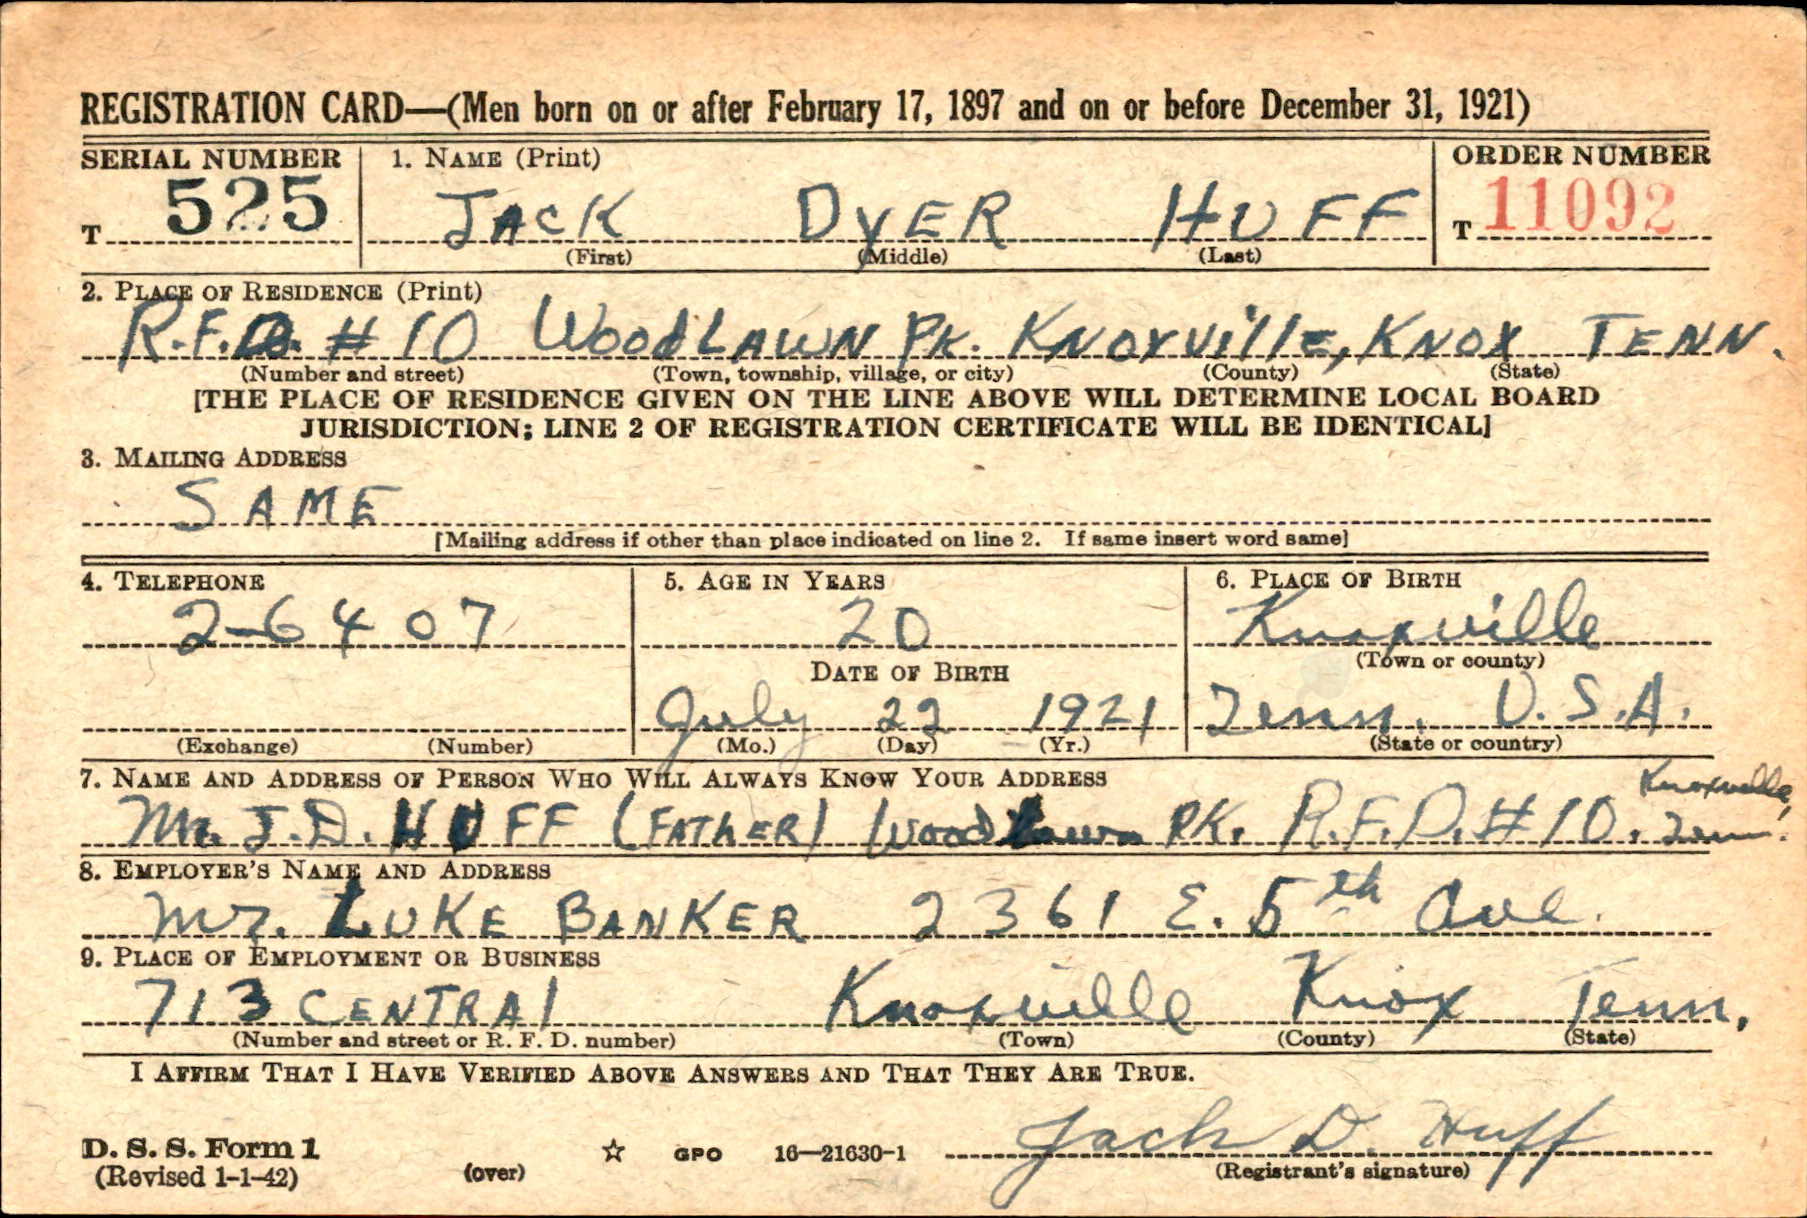 REGISTRATION CARD—(Men born on or after February 17, 1897 and on or before December 31, 1921)
SERIAL NUMBER 1. NAME (Print) ORDER NUMBER
T 525 JACK DYER HUFF T 11092
(First) (Middle) (Last)
2. PLACE OF RESIDENCE (Print)
R.F.D. #10 WoodLAWN PK. KNOXVillE, KNOX TENN.
(Number and street) (Town, township, village, or city) (County) (State)
[THE PLACE OF RESIDENCE GIVEN ON THE LINE ABOVE WILL DETERMINE LOCAL BOARD
JURISDICTION; LINE 2 OF REGISTRATION CERTIFICATE WILL BE IDENTICAL]
3. MAILING ADDRESS
SAME
[Mailing address if other than place indicated on line 2. If same insert word same]
4. TELEPHONE 5. AGE IN YEARS 6. PLACE OF BIRTH
2-6407 20 Knoxville
DATE OF BIRTH (Town or county)
July 22 1921 Tenn. U.S.A.
(Exchange) (Number) (Mo.) (Day) (Yr.) (State or country)
7. NAME AND ADDRESS OF PERSON WHO WILL ALWAYS KNOW YOUR ADDRESS
Mr. J.D. HUFF (FATHER) WoodLawn PK. R.F.D. #10. Knoxville, Tenn.
8. EMPLOYER'S NAME AND ADDRESS
Mr. LUKE BANKER 2361 E. 5th Ave.
9. PLACE OF EMPLOYMENT OR BUSINESS
713 CENTRAl Knoxville Knox Tenn.
(Number and street or R. F. D. number) (Town) (County) (State)
I AFFIRM THAT I HAVE VERIFIED ABOVE ANSWERS AND THAT THEY ARE TRUE.
D. S. S. Form 1 ☆ GPO 16—21630-1 Jack D. Huff
(Revised 1-1-42) (over) (Registrant's signature)